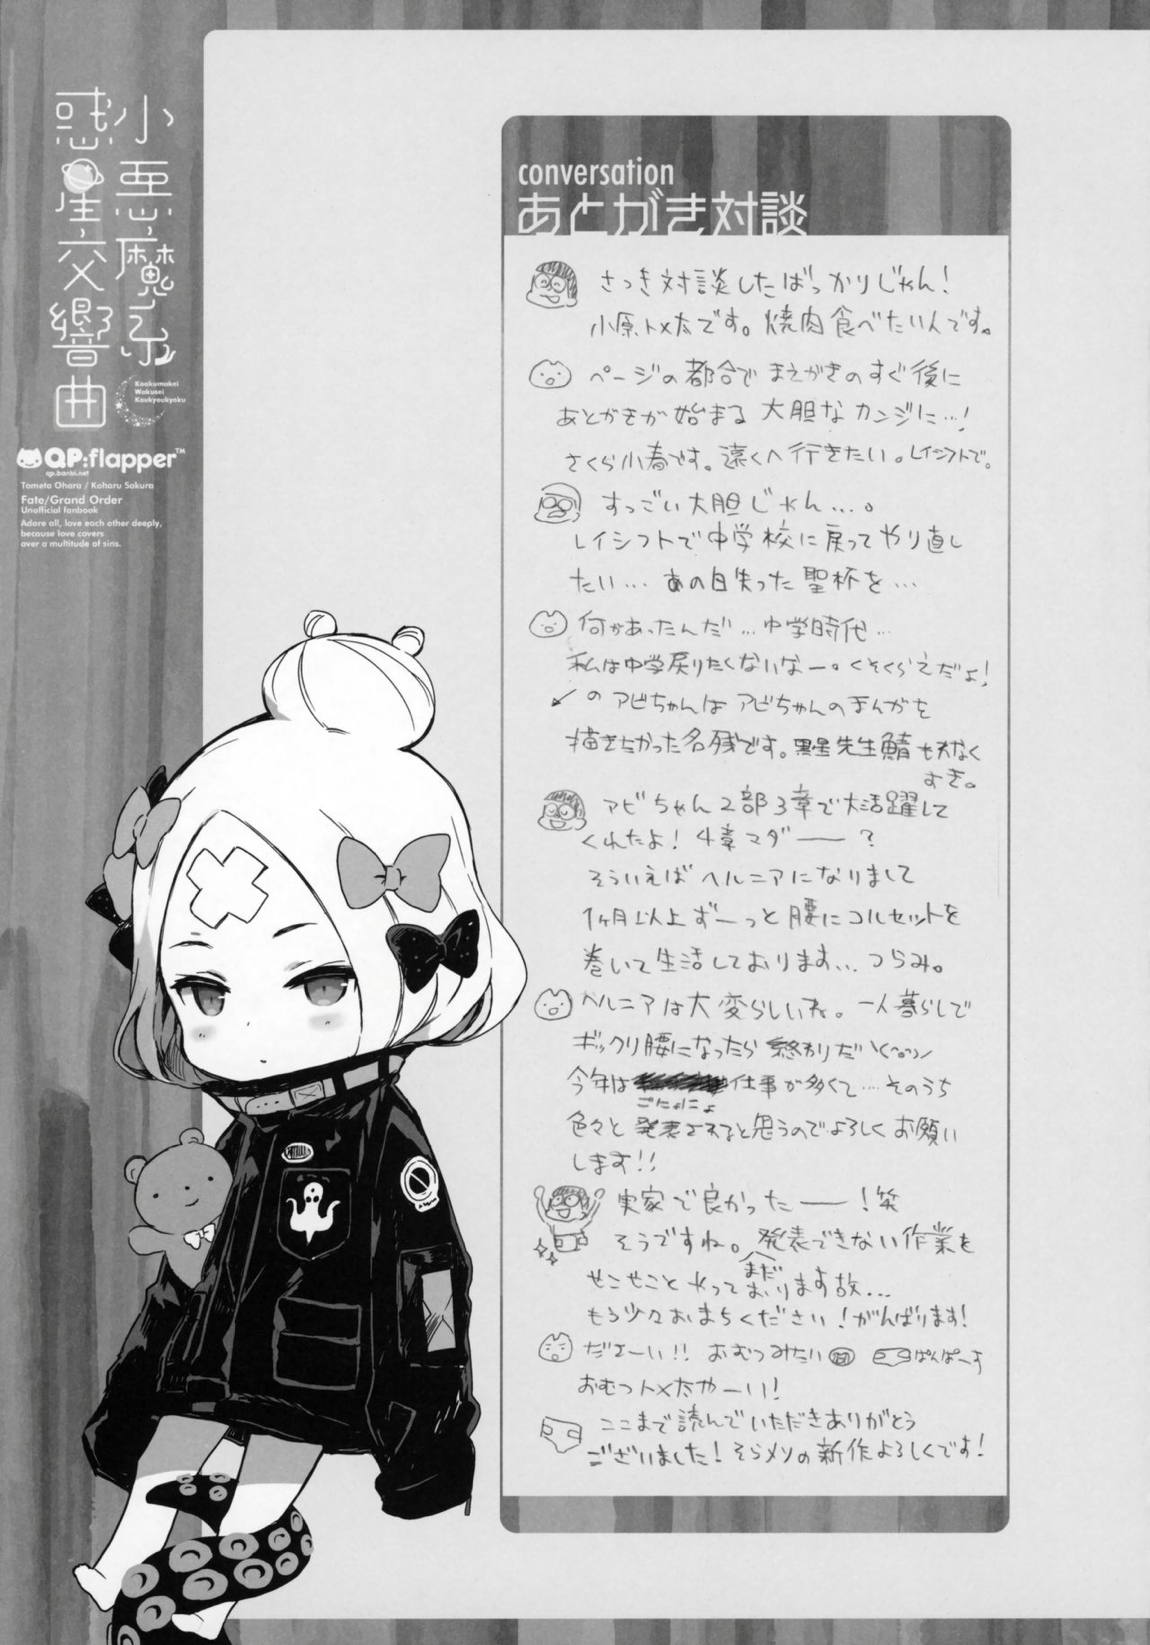 小悪魔系
惑星交響曲
Koakumakei
Wakusei
Koukyoukyoku
QP:flapper™
qp.banbi.net
Tometa Ohara / Koharu Sakura
Fate/Grand Order
Unofficial fanbook
Adore all, love each other deeply,
because love covers
over a multitude of sins.
conversation
あとがき対談
さっき対談したばっかりじゃん!
小原トメ太です。焼肉食べたいんです。
ページの都合で まえがきのすぐ後に
あとがきが始まる 大胆な カンジに…!
さくら小春です。遠くへ行きたい。レイシフトで。
すっごい大胆じゃん…。
レイシフトで中学校に戻ってやり直し
たい… あの日失った聖杯を…
何があったんだ… 中学時代…
私は中学戻りたくないなー。くそくらえだよ!
↙のアビちゃんは アビちゃんのまんがを
描きたかった名残です。黒星先生鯖 もえなく
すぎ。
アビちゃん2部3章で大活躍して
くれたよ! 4章マダ――?
そういえば ヘルニアになりまして
1ヶ月以上ずーっと腰にコルセットを
巻いて生活しております… つらみ。
ヘルニアは大変らしいね。一人暮らしで
ギックリ腰になったら 終わりだ
今年は 仕事が多くて… そのうち
ごにょにょ
色々と 発表されると思うのでよろしくお願い
します!!
実家で良かったー―!笑
そうですね。発表できない作業を
まだ
せこせことやっております故…
もう少々おまちください!がんばります!
だよーい!! おむつみたい ぱんぱーす
おむつトメ太やーい!
ここまで読んでいただきありがとう
ございました!そらメソの新作よろしくです!